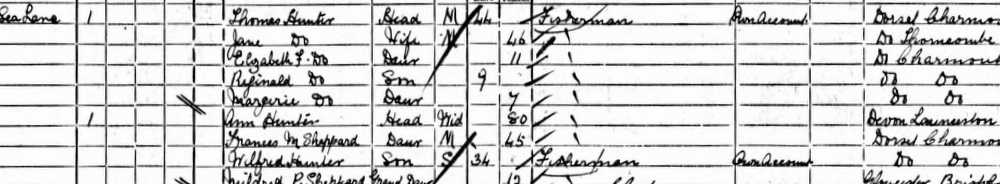 Sea Lane 1 Thomas Hunter Head M 44 Fisherman Own Account Dorset Charmou
Jane Do Wife M 46 Do Thorncombe
Elizabeth F. Do Daur 11 Do Charmout
Reginald Do Son 9 Do Do
Margerie Do Daur 7 Do Do
1 Ann Hunter Head Wid 80 Devon Launceston
Frances M Sheppard Daur M 45 Dorset Charmou
Wilfred Hunter Son S 34 Fisherman Own Account Do Do
Mildred P. Sheppard Grand Daur 12 Gloucester Bristol